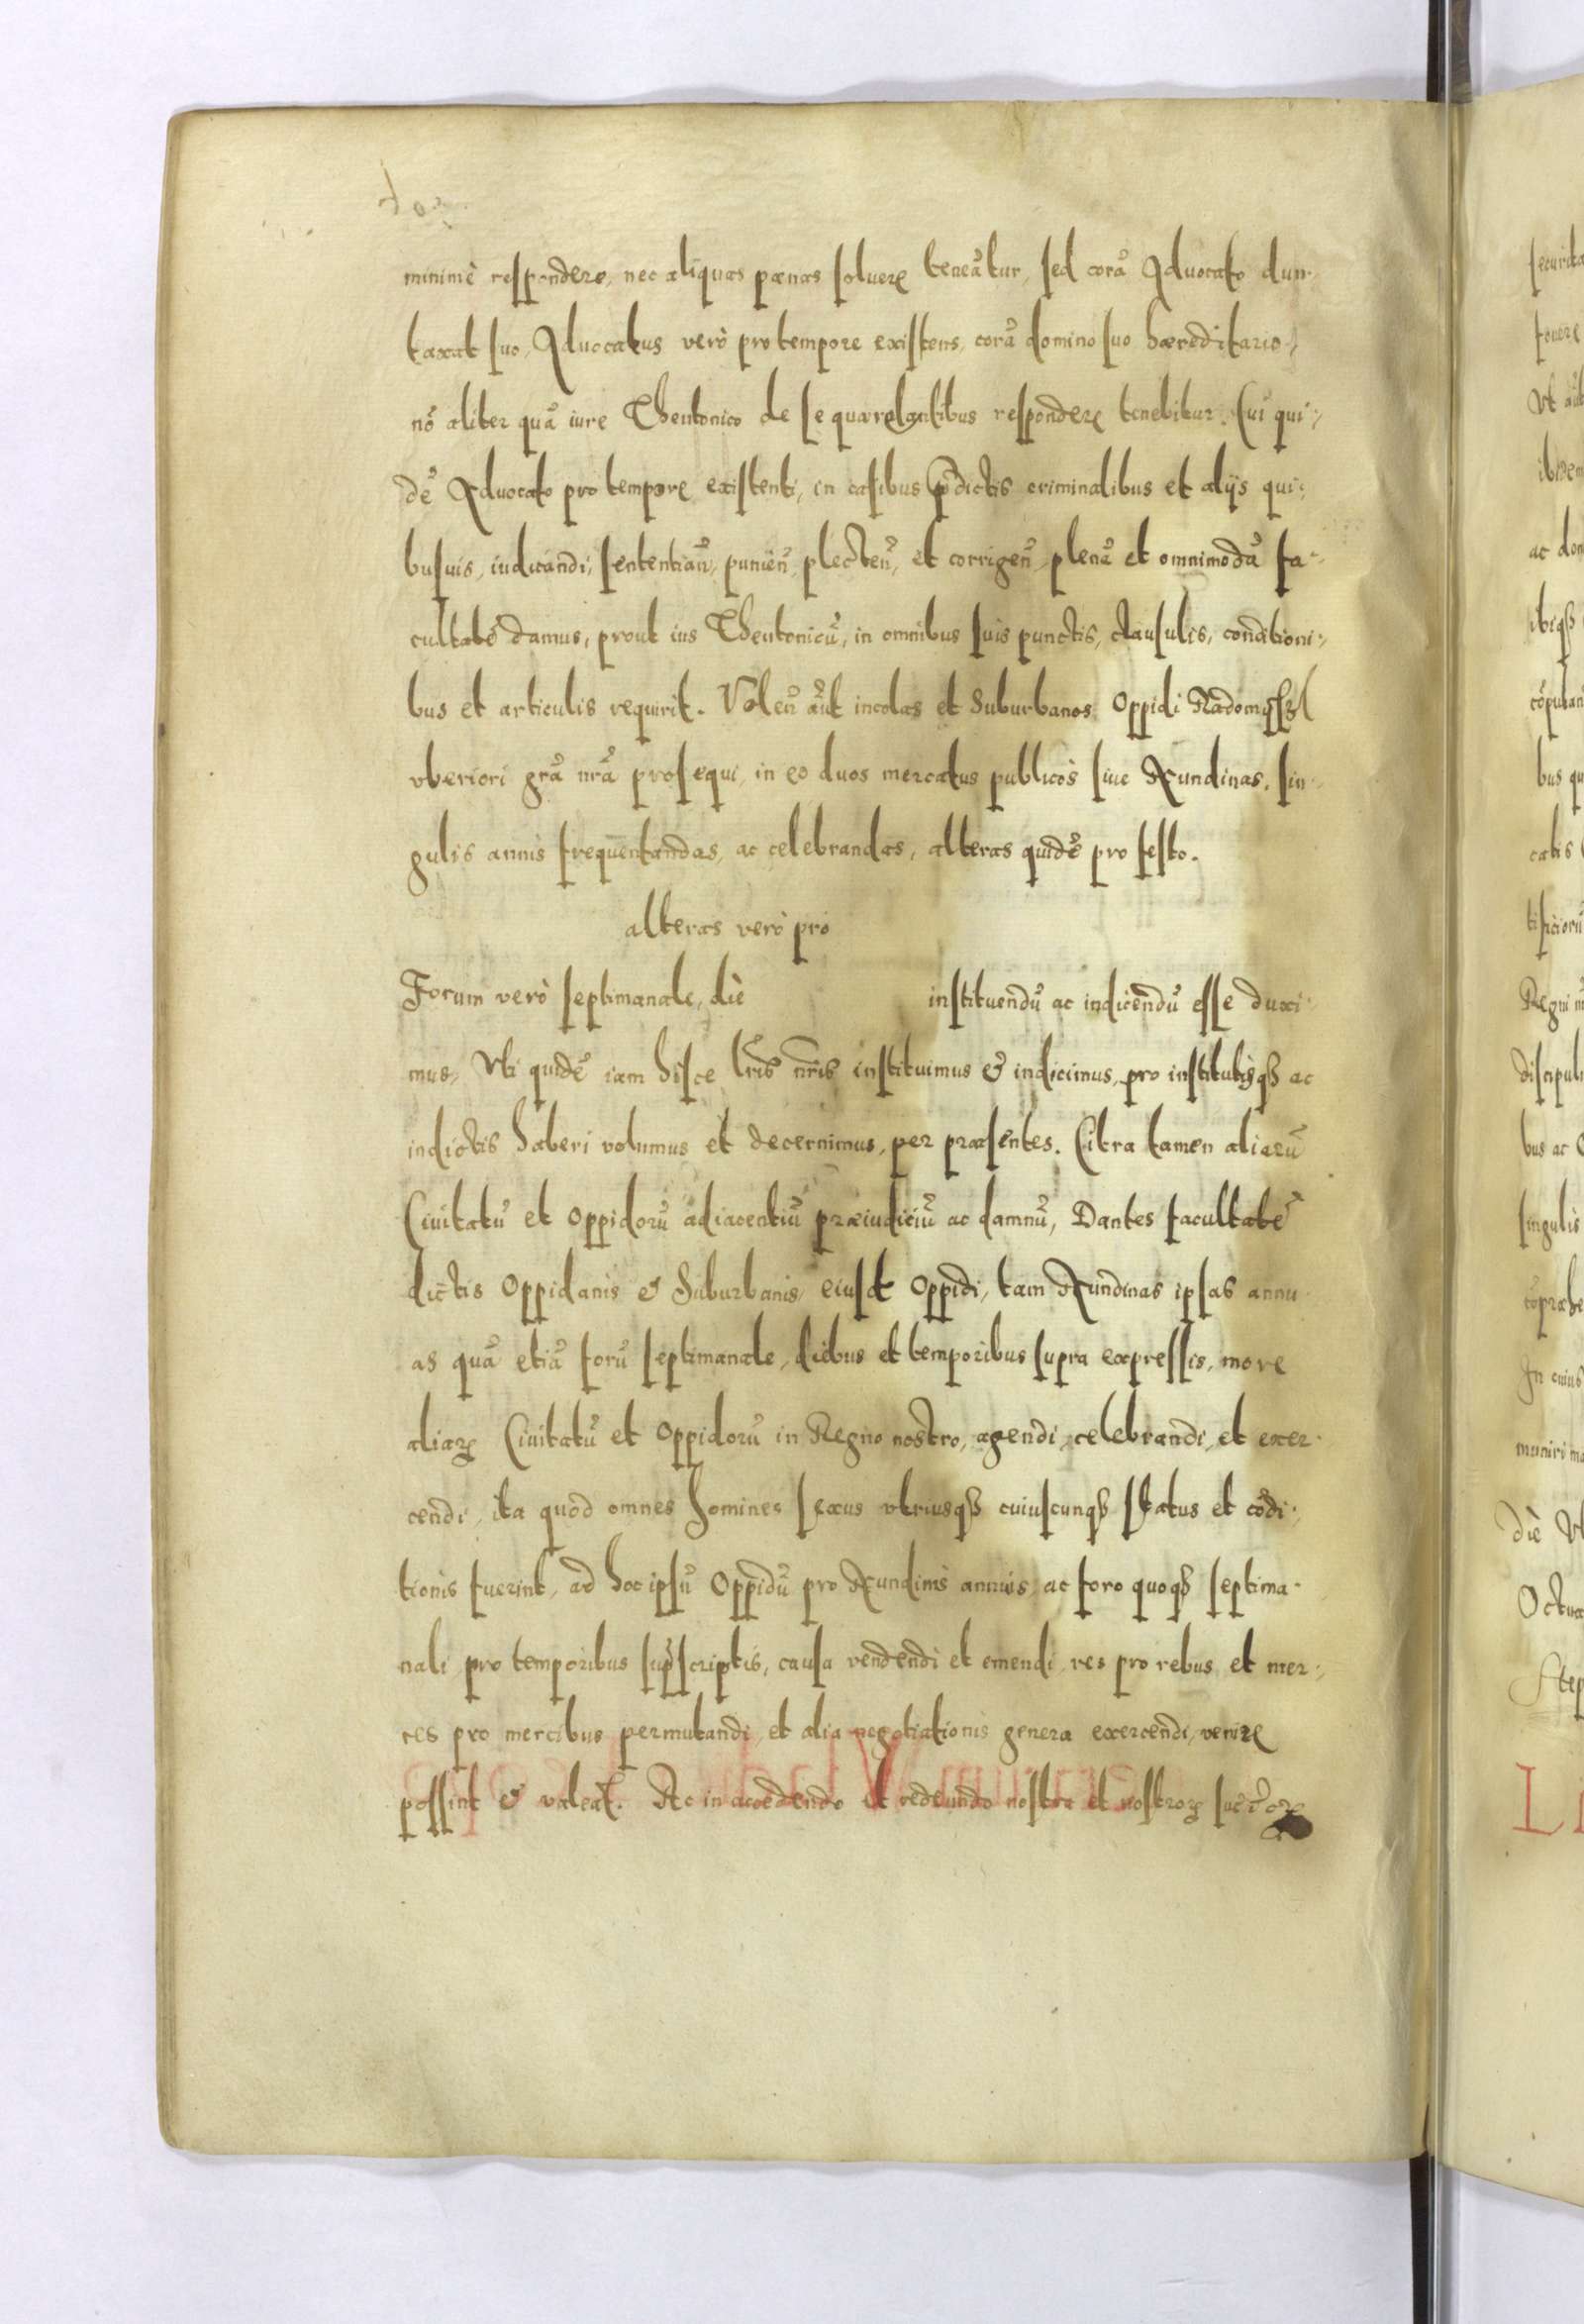 minimè respondere, nec aliquas pœnas soluere teneātur, sed corā Aduocato dun-
taxat suo, Aduocatus verò pro tempore existens, corā domino suo hæreditario,
nō aliter quā iure Theutonico de se quærelantibus respondere tenebitur. Cui qui-
dē Aduocato pro tempore existenti, in casibus p̄dictis criminalibus et alijs qui-
busuis, iudicandi, sententian̄, punien̄, plecten̄, et corrigen̄, plenā et omnimodā fa-
cultatē damus, prout ius Theutonicū, in omnibus suis punctis, clausulis, conditioni-
bus et articulis requirit. Volen̄ aūt incolas et Suburbanos Oppidi Radomysl
vberiori gr̄a nr̄a prosequi, in eo duos mercatus publicos siue Nundinas, sin-
gulis annis frequentandas, ac celebrandas, alteras quidē pro festo.
alteras verò pro
Forum verò septimanale, die instituendū ac indicendū esse duxi-
mus, Vti quidē iam hisce lr̄is nr̄is instituimus & indicimus, pro institutisqȝ ac
indictis haberi volumus et decernimus, per præsentes. Citra tamen aliarū
Ciuitatū et Oppidorū adiacentiū præiudiciū ac damnū, Dantes facultatē
dictis Oppidanis & Suburbanis eiusd Oppidi, tam Nundinas ipsas annu-
as quā etiā forū septimanale, diebus et temporibus supra expressis, more
aliaꝝ Ciuitatū et Oppidorū in Regno nostro, agendi, celebrandi, et exer-
cendi, ita quod omnes homines sexus vtriusqȝ cuiuscunqȝ status et cōdi-
tionis fuerint, ad hoc ipsū Oppidū pro Nundinis annuis, ac foro quoqȝ septima-
nali pro temporibus sup̄scriptis, causa vendendi et emendi, res pro rebus et mer-
ces pro mercibus permutandi, et alia negotiationis genera exercendi, venire
possint & valeāt. Ac in accedendo et redeundo nostra et nostroꝝ